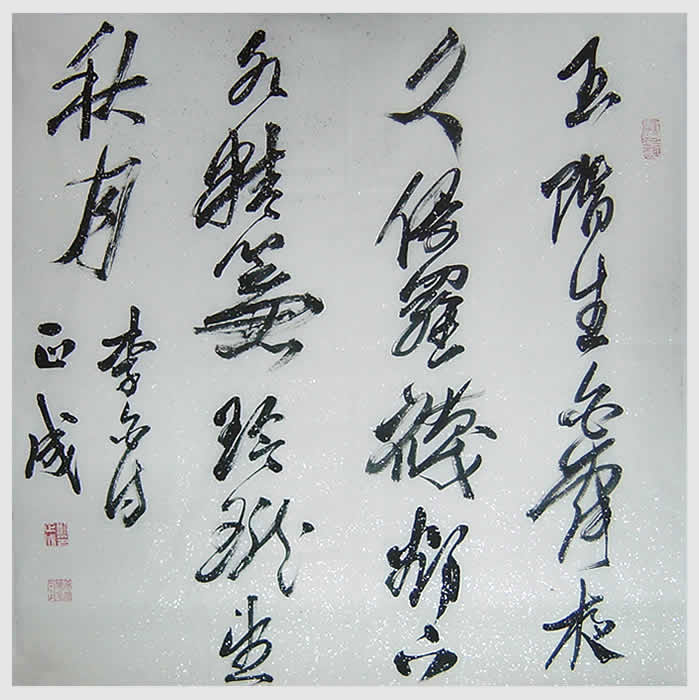 玉階生白露夜
久侵羅襪却下
水精簾玲瓏望
秋月
李白诗
正成